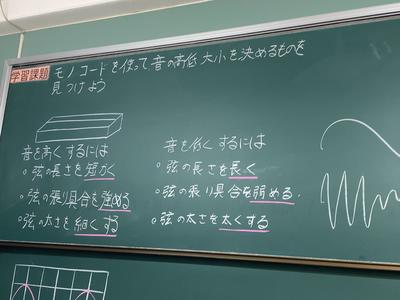 学習課題 モノコードを使って、音の高低、大小を決めるものを
見つけよう
音を高くするには
・弦の長さを短かく
・弦の張り具合を強める
・弦の太さを細くする
音を低くするには
・弦の長さを長く
・弦の張り具合を弱める.
・弦の太さを太くする